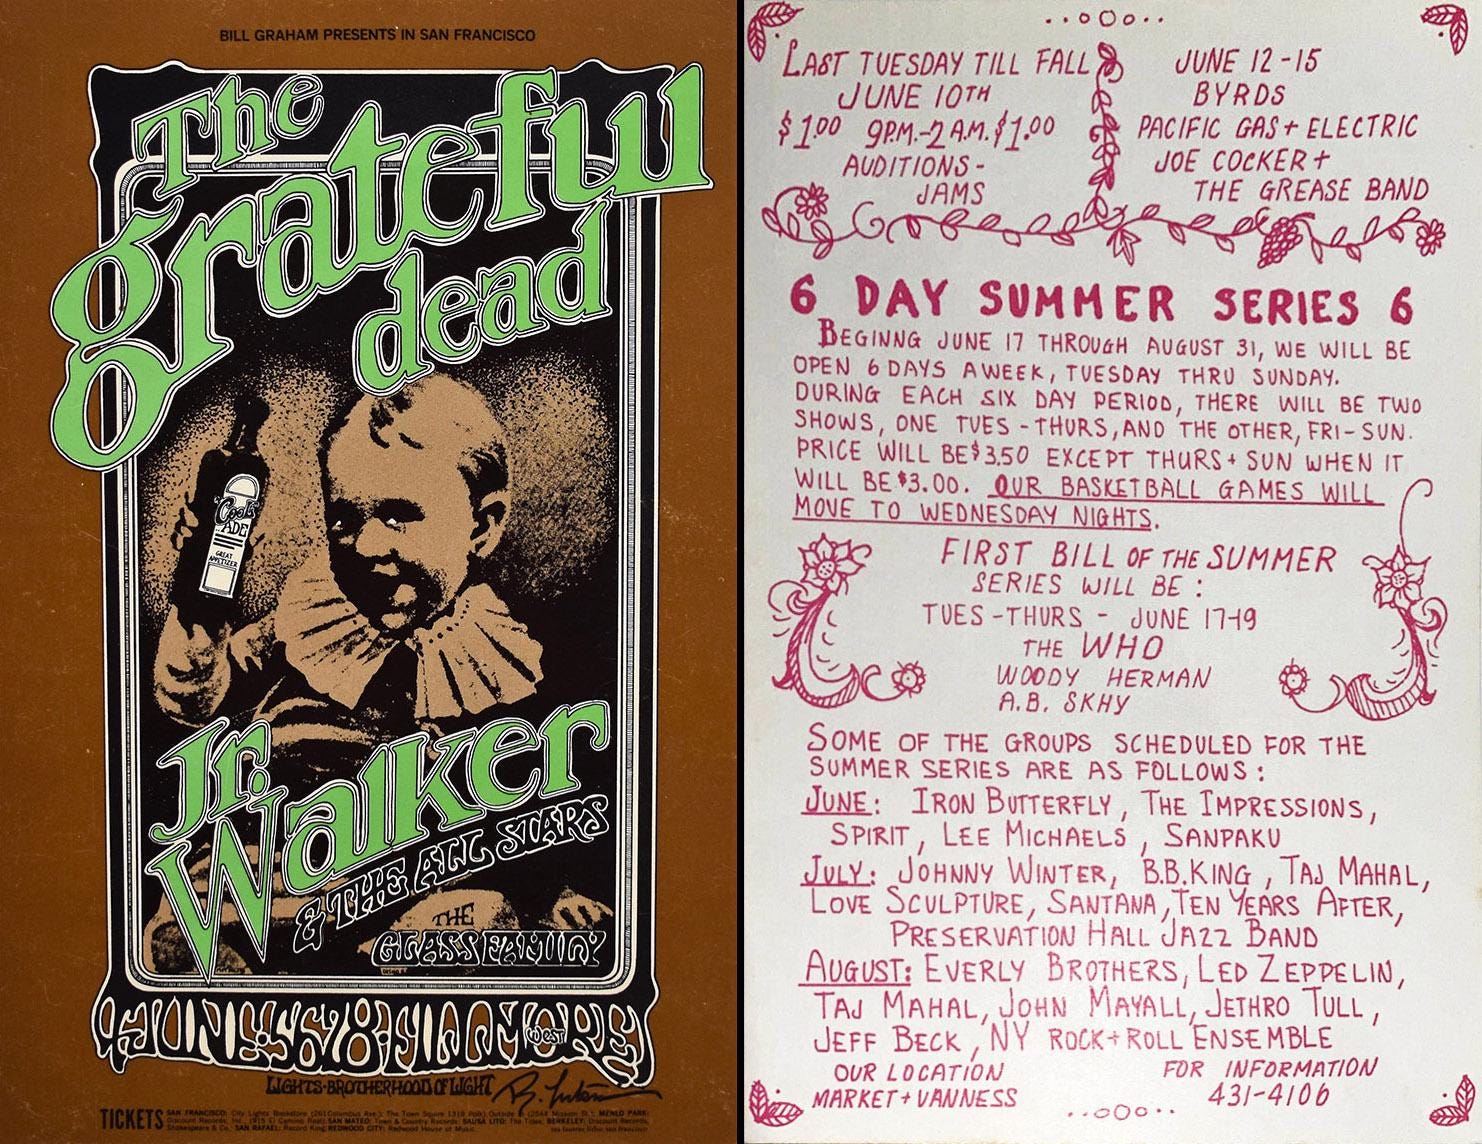 BILL GRAHAM PRESENTS IN SAN FRANCISCO
The
grateful
dead
"COOL"
ADE
GREAT
APPETIZER
Jr.
Walker
& THE ALL STARS
THE
GLASS FAMILY
JUNE·5678·FILLMORE
WEST
LIGHTS·BROTHERHOOD OF LIGHT
TICKETS SAN FRANCISCO: City Lights Bookstore (261 Columbus Ave.); The Town Squire 1318 Polk); Outside (2544 Mission St.); MENLO PARK:
Discount Records; Inc. (915 El Camino Real); SAN MATEO: Town & Country Records; SAUSALITO: The Tides; BERKELEY: Discount Records;
Shakespeare & Co. SAN RAFAEL: Record King; REDWOOD CITY: Redwood House of Music.
LAST TUESDAY TILL FALL
JUNE 10TH
$1.00 9P.M.-2 A.M. $1.00
AUDITIONS-
JAMS
JUNE 12-15
BYRDS
PACIFIC GAS + ELECTRIC
JOE COCKER +
THE GREASE BAND
6 DAY SUMMER SERIES 6
BEGINNG JUNE 17 THROUGH AUGUST 31, WE WILL BE
OPEN 6 DAYS A WEEK, TUESDAY THRU SUNDAY.
DURING EACH SIX DAY PERIOD, THERE WILL BE TWO
SHOWS, ONE TUES-THURS, AND THE OTHER, FRI-SUN.
PRICE WILL BE $3.50 EXCEPT THURS + SUN WHEN IT
WILL BE $3.00. OUR BASKETBALL GAMES WILL
MOVE TO WEDNESDAY NIGHTS.
FIRST BILL OF THE SUMMER
SERIES WILL BE:
TUES-THURS - JUNE 17-19
THE WHO
WOODY HERMAN
A.B. SKHY
SOME OF THE GROUPS SCHEDULED FOR THE
SUMMER SERIES ARE AS FOLLOWS:
JUNE: IRON BUTTERFLY, THE IMPRESSIONS,
SPIRIT, LEE MICHAELS, SANPAKU
JULY: JOHNNY WINTER, B.B. KING, TAJ MAHAL,
LOVE SCULPTURE, SANTANA, TEN YEARS AFTER,
PRESERVATION HALL JAZZ BAND
AUGUST: EVERLY BROTHERS, LED ZEPPELIN,
TAJ MAHAL, JOHN MAYALL, JETHRO TULL,
JEFF BECK, NY ROCK + ROLL ENSEMBLE
OUR LOCATION
MARKET + VANNESS
FOR INFORMATION
431-4106